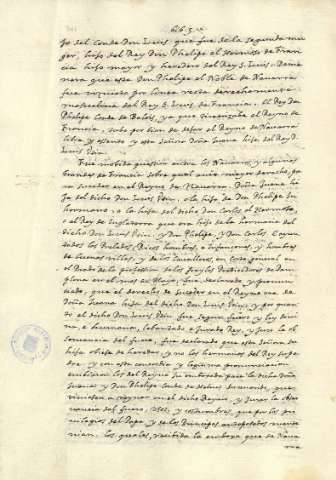 665
jo del Conde Don Luis que fue de la segunda mu-
ger, hijo del Rey Don Phelipe el Hermoso de Fran-
cia hijo mayor, y heredero del Rey S. Luis. Dema-
nera que este Don Phelipe el Noble de Navarra
fue por linea recta derechamente
masculina del Rey S. Luis de Francia. El Rey Don
Phelipe Conde de Valois, ya que el Reyno de
Francia, tubo por bien de dejar el Reyno de Navarra
libre, y esento a esta Señora Doña Juana hija del Rey D.
Luis Utin.
Fue movida question entre los Navarros, y algunos
Grandes de Francia sobre qual avia mayor derecho, pa-
ra suceder en el Reyno de Navarra. Doña Juana hi-
ja del dicho Don Luis Utin, o la hija de Don Phelipe su
hermano, o la hija del dicho Don Carlos el Hermoso,
o el Rey de Inglaterra que era hijo de la hermana del
dicho Don Luis Utin, y Don Phelipe, y Don Carlos. E ayun-
tados los Prelados, Ricos hombres, e Infanzones, y hombres
de buenas villas, y de los Cavalleros, en corte general en
el Prado de la de los frayles Predicadores de Pam-
plona en el mes de Mayo, fue declarado, y pronun-
ciado, que el derecho de suceder en el Reyno era de
Doña Juana hija del dicho Don Luis Utin, y por quan-
to el dicho Don Luis Utin fue segun fuero, y ley divi-
na, e humana, e Jurado Rey, y juró la ob-
servancia del fuero, fue declarado que esta Señora su
hija obiese de heredar, y no los hermanos del Rey su pa-
dre, y con esta concordia y legitima pronunciacion
embiaron los del Reyno su embajada para la dicha Doña
Juana, y Don Phelipe Conde de su marido, que
viniesen a reynar en el dicho Reyno, y jurar la obser-
vancia del fuero, usos, y costumbres, que por los pri-
vilegios del Papa, y de los Principes antepasados
nian, los quales, recibida la embajada que de Nava-
rra